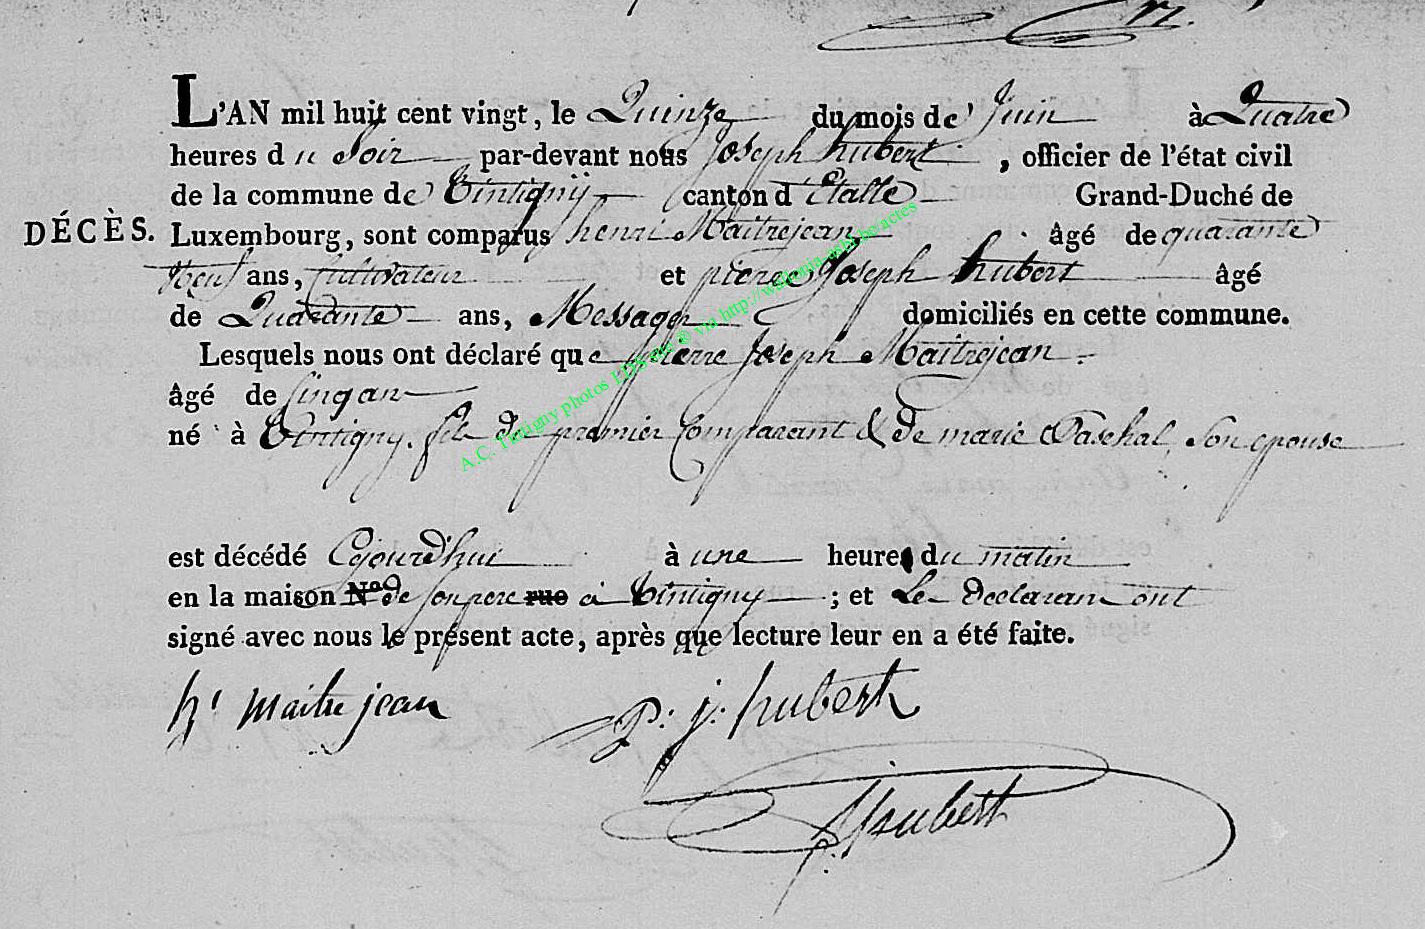 L'AN mil huit cent vingt, le Quinze du mois de Juin à Quatre
heures du Soir par-devant nous Joseph hubert, officier de l'état civil
de la commune de Tintigny canton d'Etalle Grand-Duché de
DÉCÈS. Luxembourg, sont comparus henri Maitrejean âgé de quarante
neuf ans, Cultivateur et pierre Joseph hubert âgé
de Quarante ans, Messager domiciliés en cette commune.
Lesquels nous ont déclaré que pierre Joseph Maitrejean
âgé de Cinq an
né à Tintigny. fils du premier Comparant & de marie Paschal, Son epouse
est décédé Cejourd'hui à une heure du matin
en la maison N.º de son pere rue à Tintigny ; et Les Declarans ont
signé avec nous le présent acte, après que lecture leur en a été faite.
h! maitre jean P: j: hubert
J hubert
A.C. Tintigny photos LDS via http://wallonia-asbl.be/actes